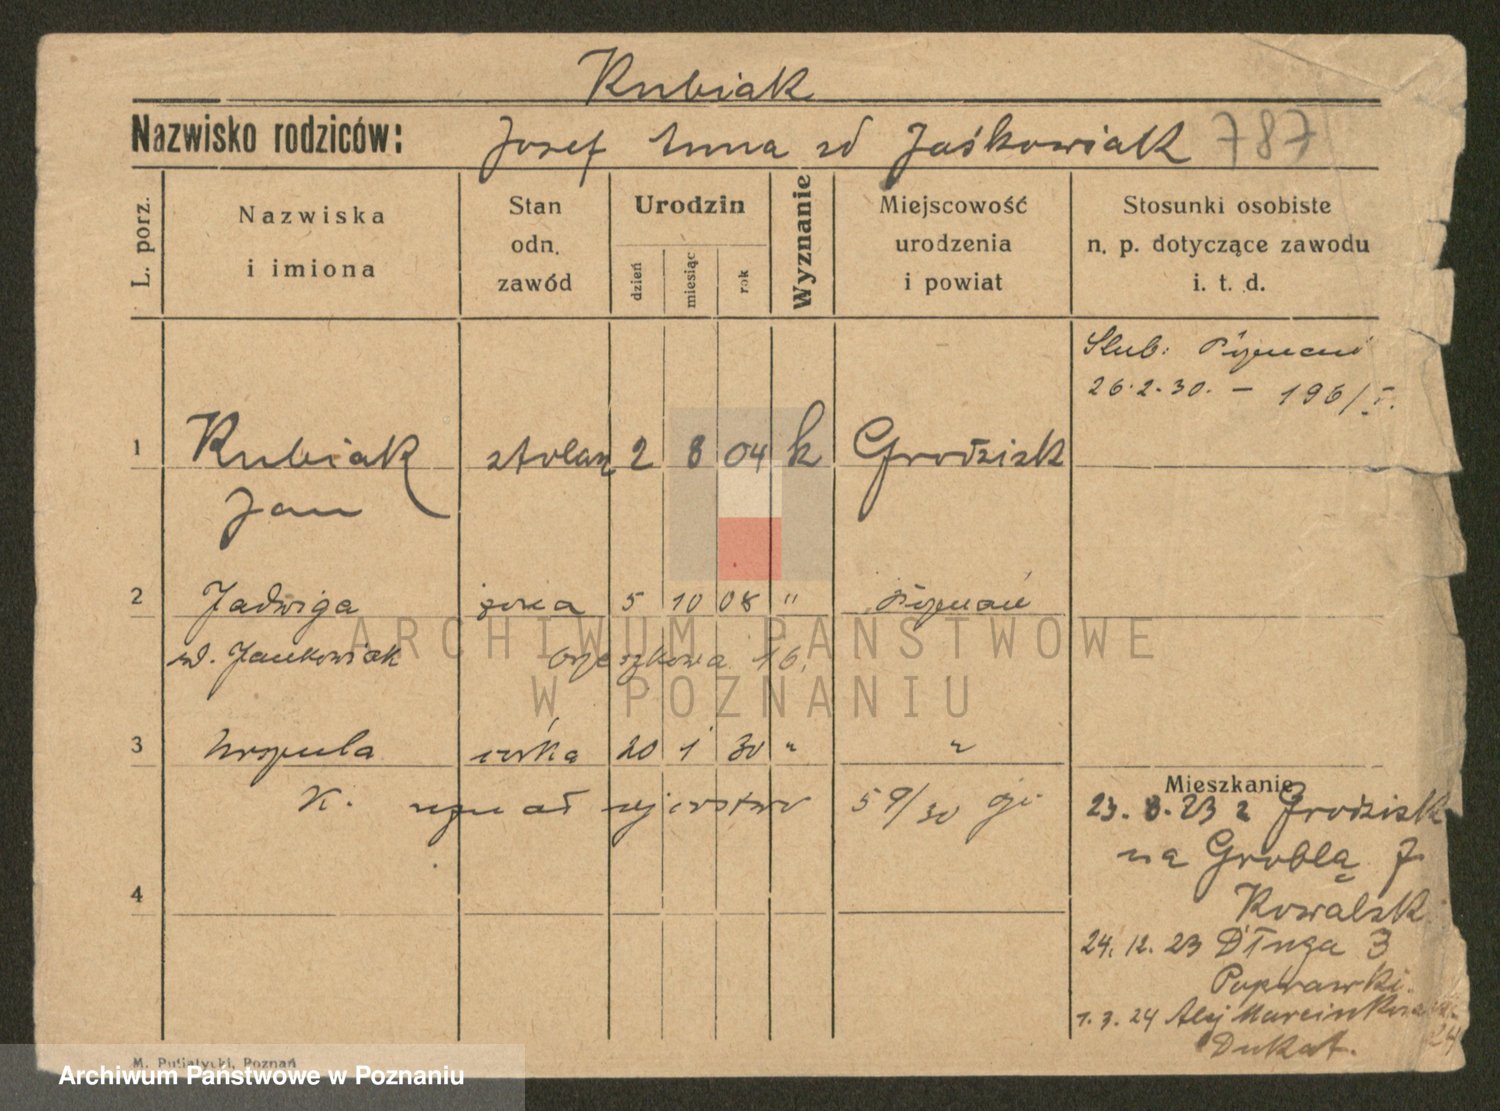 Kubiak
Nazwisko rodziców: Josef Anna zd Jaśkowiak 787
L. porz.
Nazwiska i imiona
Stan odn. zawód
Urodzin
dzień
miesiąc
rok
Wyznanie
Miejscowość urodzenia i powiat
Stosunki osobiste n. p. dotyczące zawodu i. t. d.
Slub: Poznań
26.2.30. – 196/I.
1 Kubiak stolarz 2 8 04 k Grodzisk
Jan
2 Jadwiga żona 5 10 08 " Poznań
zd. Jankowiak Orzeszkowa 16.
3 Urszula córka 20 1 30 " "
K. uznał ojcostwo 59/30
Mieszkanie
23. 8. 23 z Grodzisk
na Groblą 7
Kowalsk
4
24. 12. 23 Długa 3
Poprawski.
1. 3. 24 Alej Marcinkow
24
Dukat.
M. Putiatycki, Poznań
ARCHIWUM PAŃSTWOWE
W POZNANIU
Archiwum Państwowe w Poznaniu